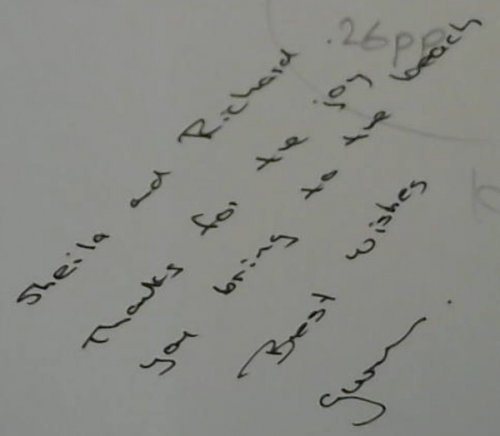 .26pp
Sheila and Richard
Thanks for the joy
you bring to the beach
Best Wishes